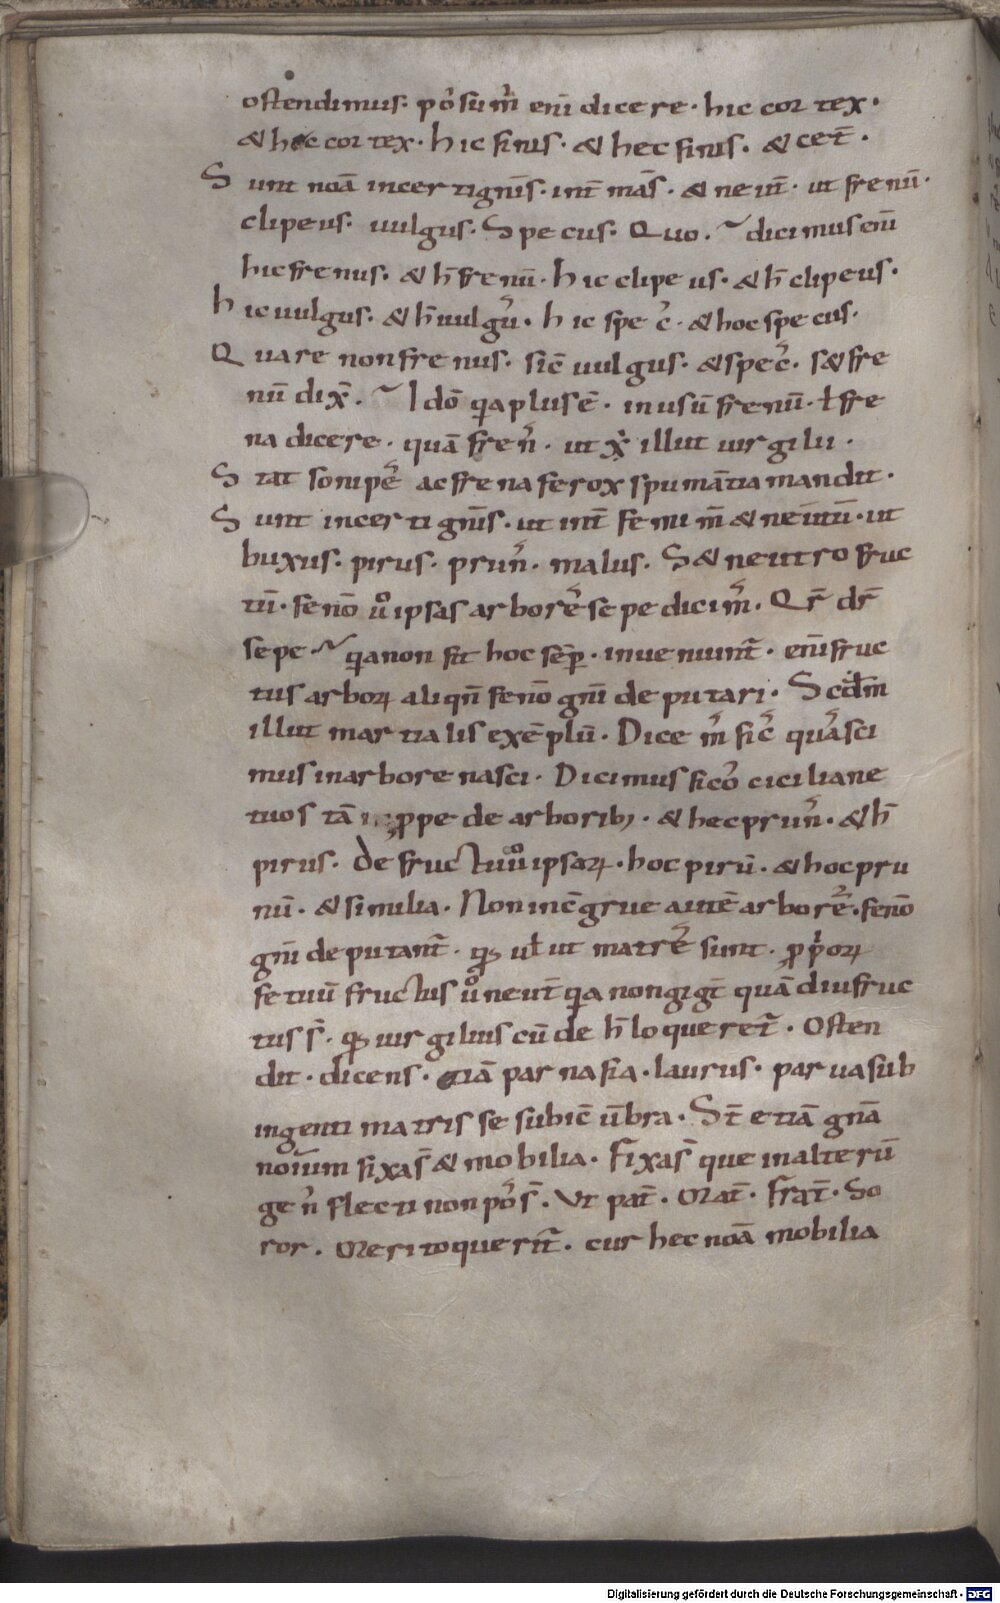 ostendimus· pośum̄ enī dicere· hic cortex·
& hec cortex· hic finis· & hec finis· & cet̄·
Sunt noā incerti gnīs· int̄ mās· & neut̄· ut frenū·
clipeus· uulgus· Specus· Quo· dicimus enī
hic frenus· & h̄ frenū· hic clipeus· & h̄ clipeus·
hic uulgus· & h̄ uulgū· hic spec̄· & hoc specus·
Quare non frenus· sic̄ uulgus· & spec̄· s& fre
nū dix̄· Idō qia plus ē· in usū frenū· ł fre
na dicere· quā fren̄· ut x̄ illut uirgilii·
Stat sonipē ac frena ferox spumātia mandit·
Sunt incerti gnīs· ut int̄ femim̄ & neutū· ut
buxus· pirus· prun̄· malus· S& neutro fruc
tū· fenō ů ipsas arborē sepe dicim̄· Qr̄ dr̄
sepe qia non fit hoc sēp· inueniunt̄· enī fruc
tus arboꝝ aliqn̄ fenō gnī deputari· Scdm̄
illut martialis exēplū· Dicem̄ fic̄ quas sci
mus in arbore nasci· Dicimus ficō ciciliane
tuos tā ꝓpe de arborib; · & hec prun̄· & h̄
pirus· De fructu ů ipsaꝝ· hoc pirū· & hoc pru
nū· & similia· Non incḡrue autē arborē· fenō
gnī deputant̄· qꝫ uł ut matrē sunt· ꝓprioꝝ
fetuū fructus ů neut̄ qia non gigt̄ quādiu fruc
tus s̄· qꝫ uirgilius cū de h̄ loqueret̄· Osten
dit· dicens· etiā parnasia· laurus· parua sub
ingenti matris se subic̄ ūbra· St̄ etiā gnā
noīum fixas̄ & mobilia· Fixas̄ que in alterū
gen̄ flecti non pos̄· Ut pat̄· Mat̄· frat̄· So
ror· Merito querit̄· cur hec noā mobilia
Digitalisierung gefördert durch die Deutsche Forschungsgemeinschaft · DFG